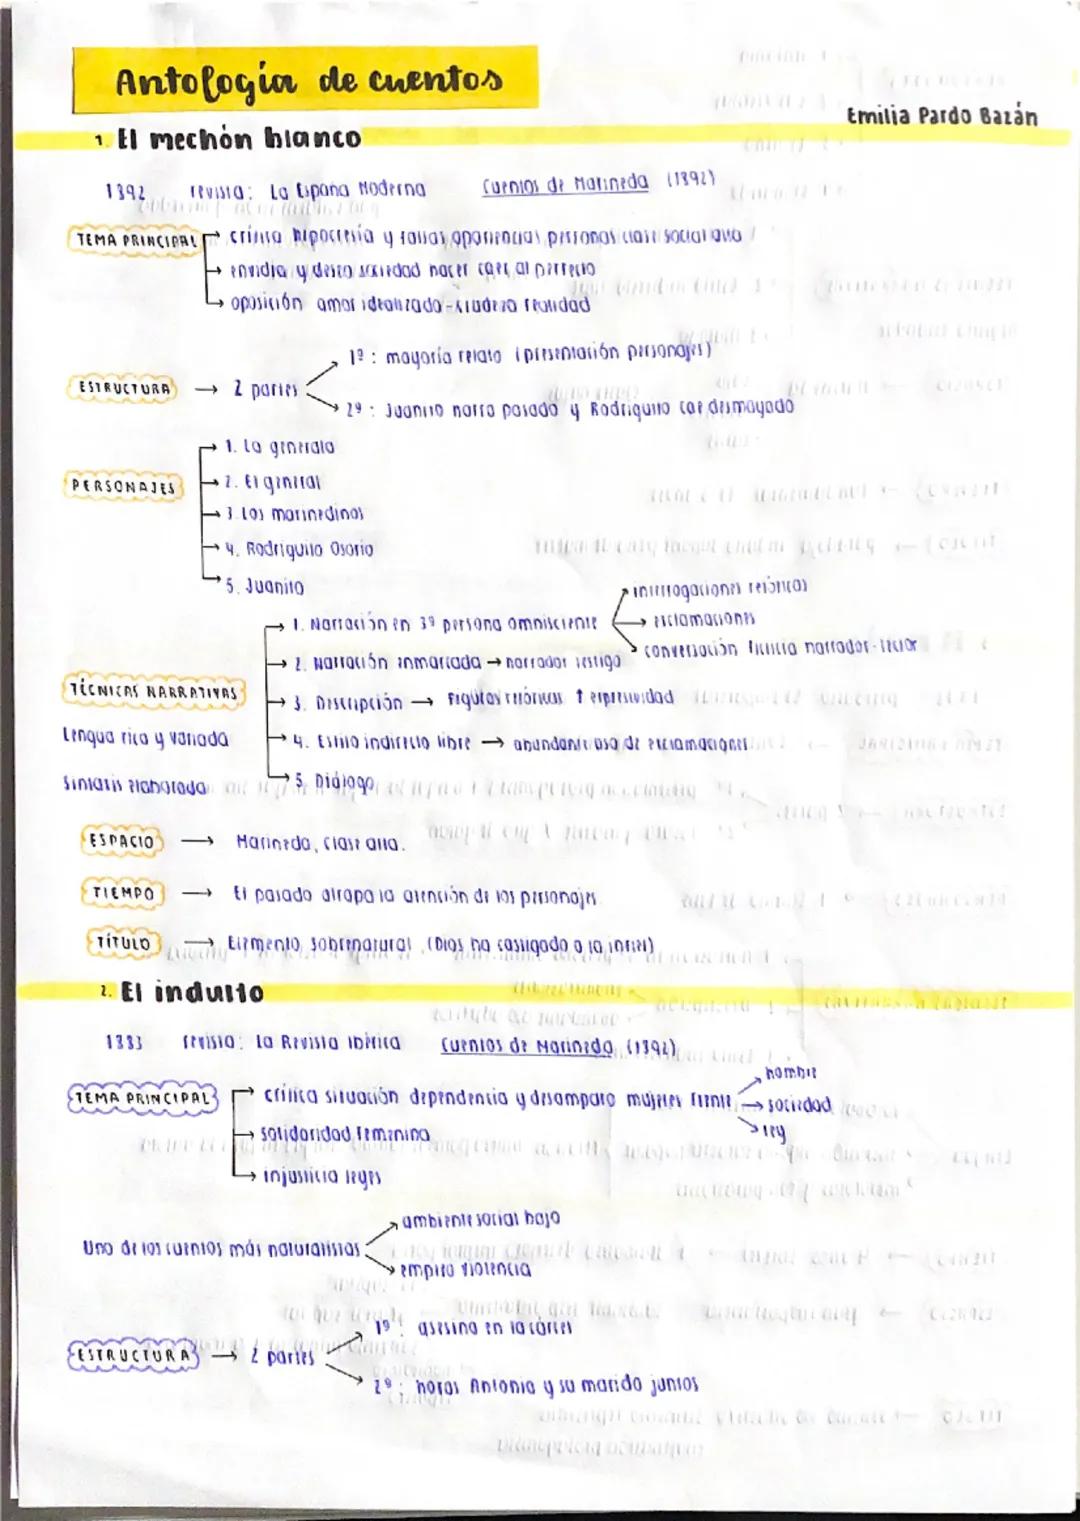 Antología de cuentos
Emilia Pardo Bazán
1. El mechón blanco
1892 revista: La España Moderna Cuentos de Marineda (1892)
TEMA PRINCIPAL → crítica hipocresía y falsas apariencias personas clase social alta
→ envidia y deseo sociedad hacer caer al perfecto
→ oposición amor idealizado - crudeza realidad
ESTRUCTURA → 2 partes
1º: mayoría relato (presentación personajes)
2º: Juanito narra pasado y Rodriguito cae desmayado
PERSONAJES
→ 1. La generala
→ 2. El general
→ 3. Los marinedinos
→ 4. Rodriguito Osorio
→ 5. Juanito
TÉCNICAS NARRATIVAS
Lengua rica y variada
Sintaxis elaborada
→ 1. Narración en 3ª persona omnisciente
→ interrogaciones retóricas
→ exclamaciones
→ conversación ficticia narrador-lector
→ 2. Narración enmarcada → narrador testigo
→ 3. Descripción → Figuras retóricas ↑ expresividad
→ 4. Estilo indirecto libre → abundante uso de exclamaciones
→ 5. Diálogo
ESPACIO → Marineda, clase alta.
TIEMPO → El pasado atrapa la atención de los personajes
TÍTULO → Elemento sobrenatural (Dios ha castigado a la infiel)
2. El indulto
1883 revista: La Revista Ibérica Cuentos de Marineda (1892)
TEMA PRINCIPAL → crítica situación dependencia y desamparo mujeres frente
→ hombre
→ sociedad
→ ley
→ solidaridad femenina
→ injusticia leyes
Uno de los cuentos más naturalistas
→ ambiente social bajo
→ empleo violencia
ESTRUCTURA → 2 partes
1º: asesino en la cárcel
2º: horas Antonia y su marido juntos